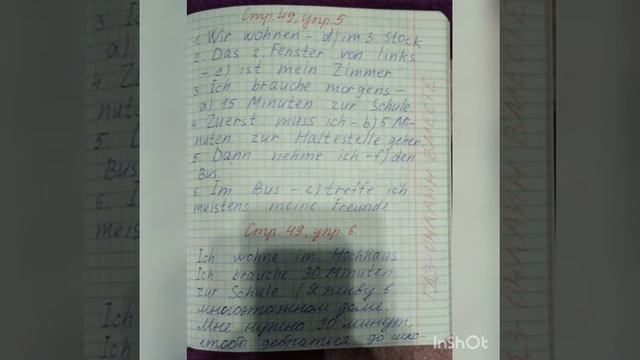 Стр. 49, упр. 5
1. Wir wohnen - d) im 3. Stock
2. Das 2. Fenster von links.
- e) ist mein Zimmer
3 Ich brauche morgens -
a) 15 Minuten zur Schule.
4. Zuerst muss ich - b) 5 Mi-
nuten zur Haltestelle gehen.
5. Dann nehme ich - f) den
Bus.
6. Im Bus - c) treffe ich
meistens meine Freunde
Стр. 49, упр. 6
Ich wohne im Hochhaus
Ich brauche 30 Minuten
zur Schule. (Я живу в
многоэтажном доме.
Мне нужно 30 минут
чтобы добраться до шко-
ГДЗ-ОНЛАЙН ВМЕСТЕ
InShOt
3
a)
4. Zu
nute
5. D
Bus
6. I
meis
Ich
Ich